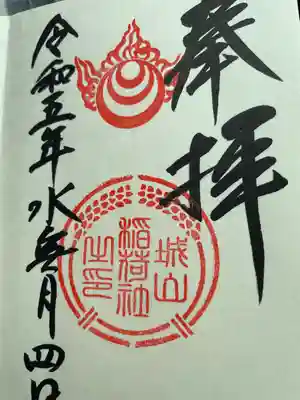 奉拝
城山
稲荷社
之印
令和五年水無月四日